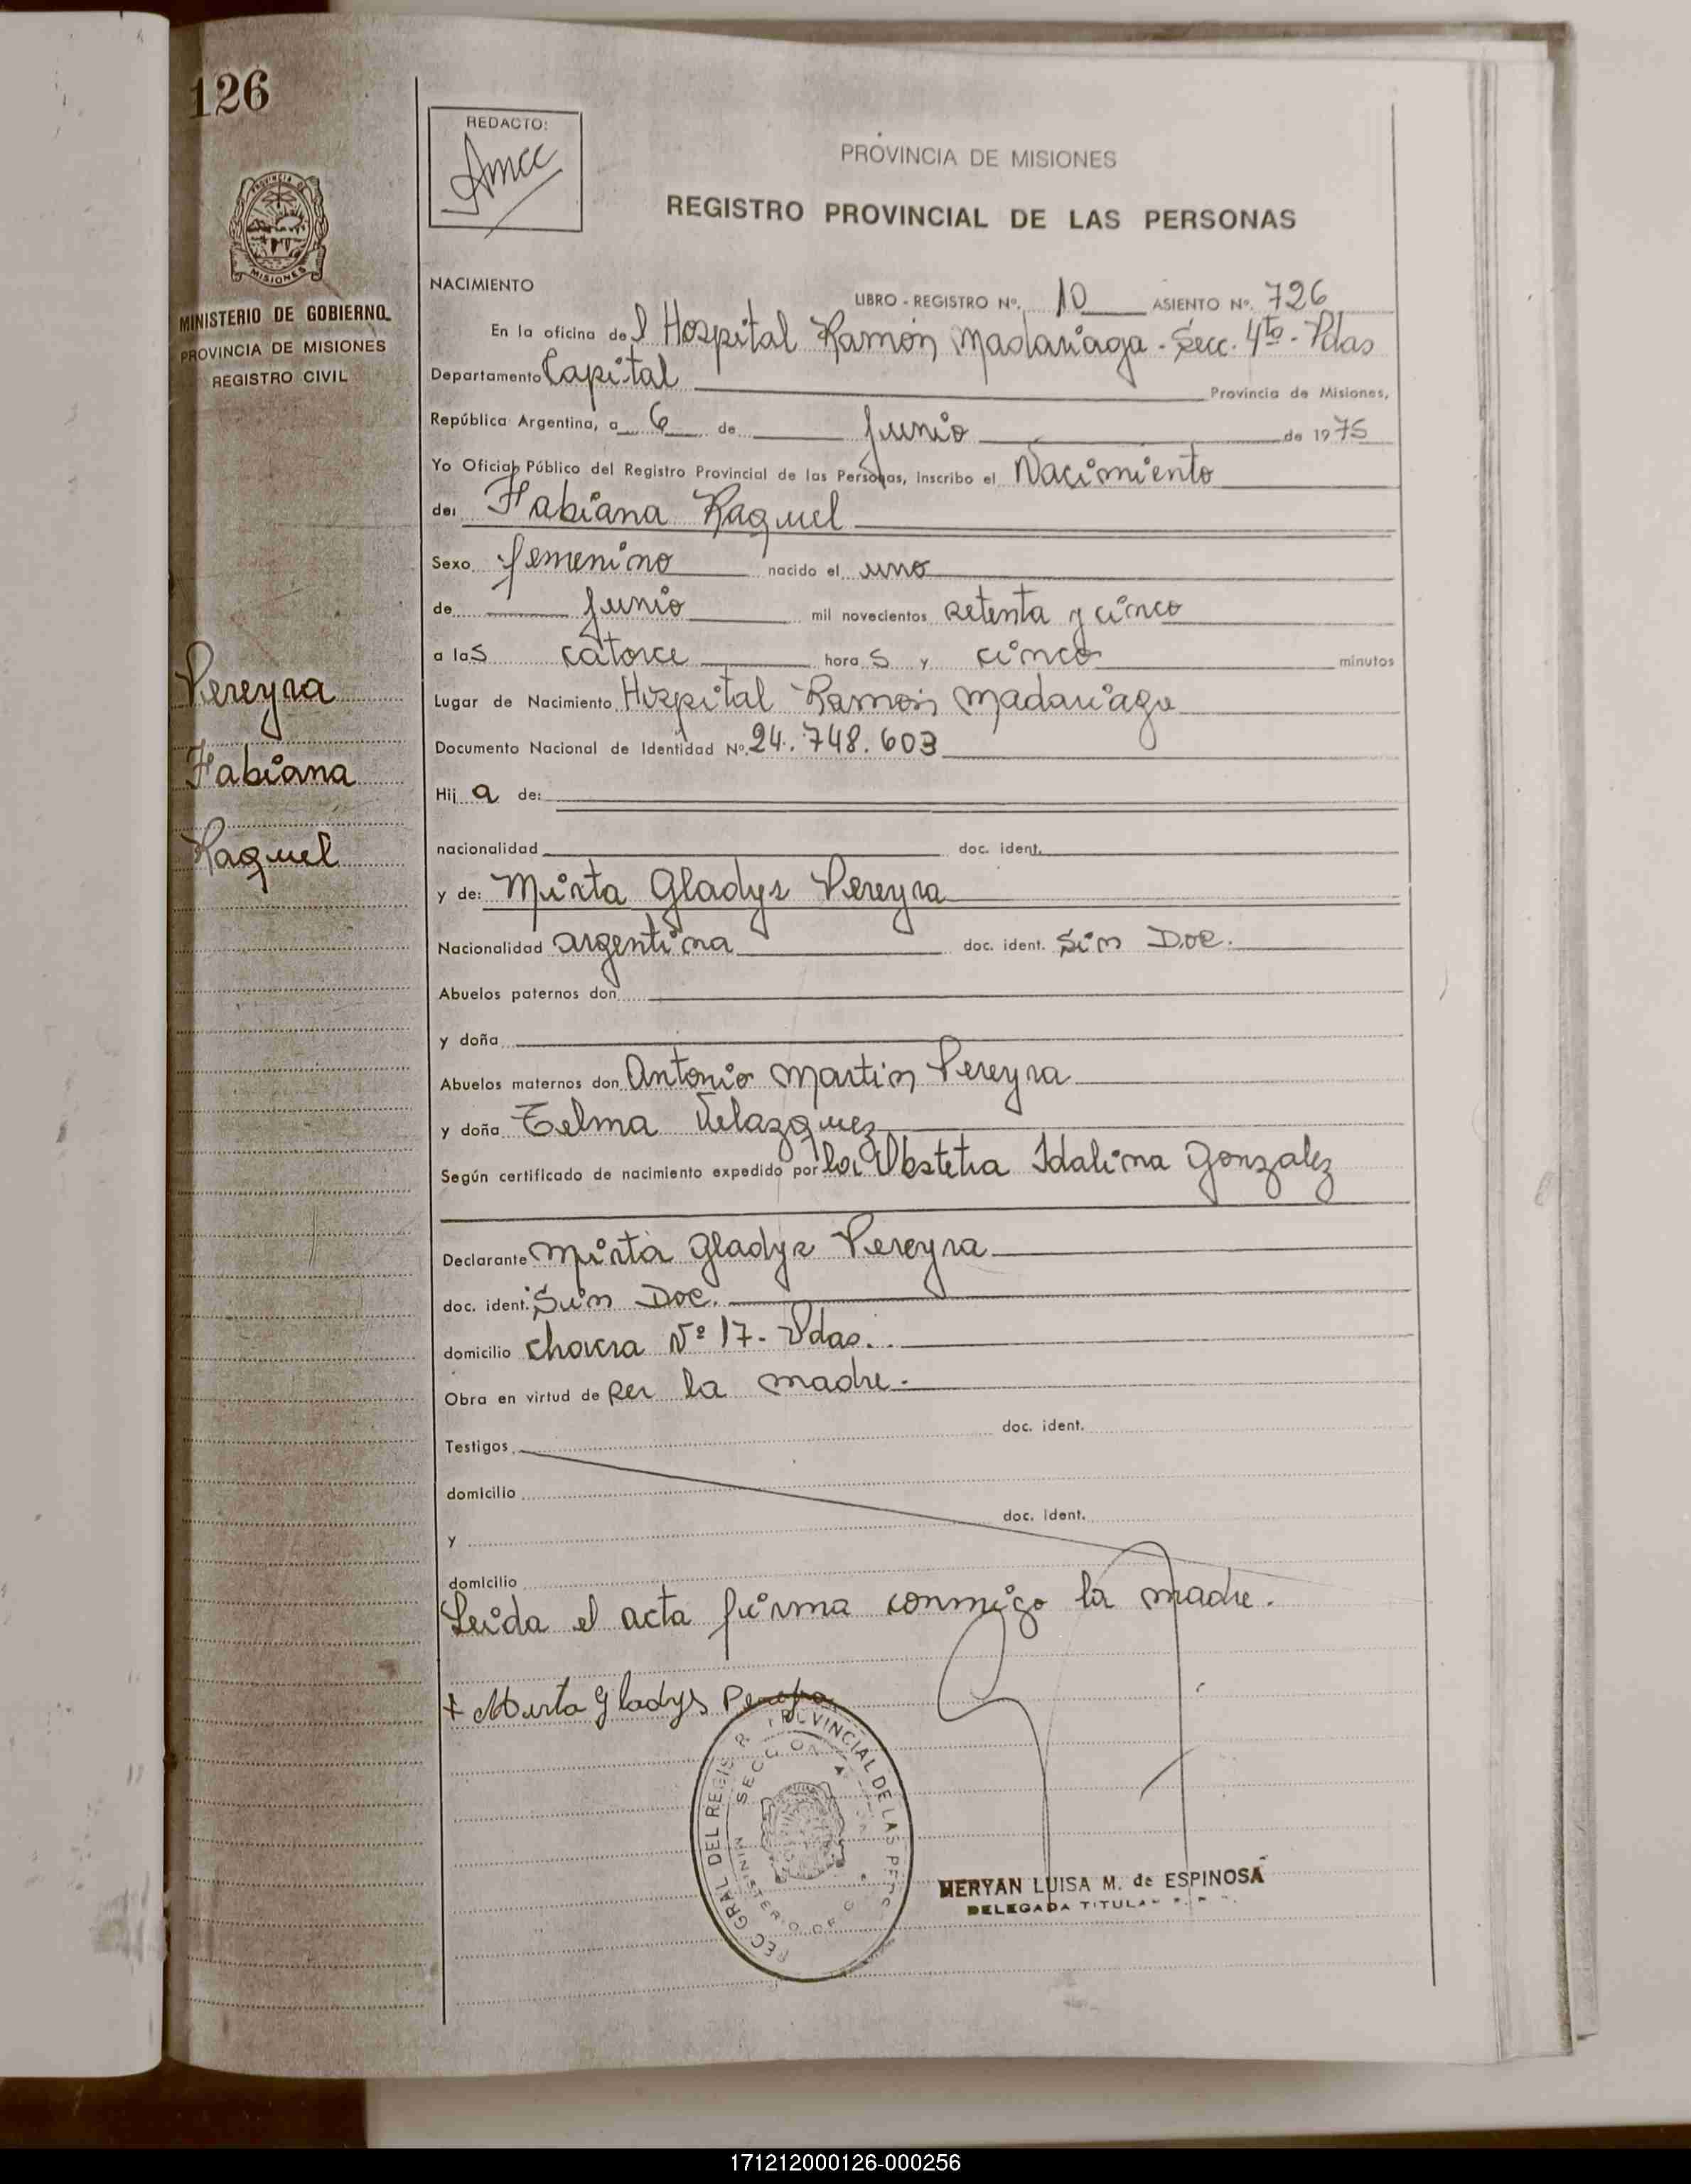 126
REDACTO:
PROVINCIA DE
MISIONES
MINISTERIO DE GOBIERNO
PROVINCIA DE MISIONES
REGISTRO CIVIL
Pereyra
Fabiana
Raquel
PROVINCIA DE MISIONES
REGISTRO PROVINCIAL DE LAS PERSONAS
NACIMIENTO
LIBRO - REGISTRO Nº. 10 ASIENTO Nº. 726
En la oficina del Hospital Ramón Madariaga - Secc. 4ta - Pdas
Departamento Capital Provincia de Misiones,
República Argentina, a 6 de Junio de 1975
Yo Oficial Público del Registro Provincial de las Personas, inscribo el Nacimiento
de: Fabiana Raquel
Sexo femenino nacido el uno
de Junio mil novecientos setenta y cinco
a las catorce horas y cinco minutos
Lugar de Nacimiento Hospital Ramón Madariaga
Documento Nacional de Identidad Nº. 24.748.603
Hija de:
nacionalidad doc. ident.
y de: Mirta Gladys Pereyra
Nacionalidad argentina doc. ident. Sin Doc.
Abuelos paternos don
y doña
Abuelos maternos don Antonio Martin Pereyra
y doña Telma Velazquez
Según certificado de nacimiento expedido por la Obstetra Idalina Gonzalez
Declarante Mirta Gladys Pereyra
doc. ident. Sin Doc.
domicilio chacra Nº 17 - Pdas.
Obra en virtud de ser la madre.
doc. ident.
Testigos
domicilio
doc. ident.
y
domicilio
Leida el acta firma conmigo la madre.
+ Mirta Gladys Pereyra
GRAL DEL REGIS PROVINCIAL DE LAS PERS
SECCION
MINISTERIO DE
MERYAN LUISA M. de ESPINOSA
DELEGADA TITULAR
171212000126-000256